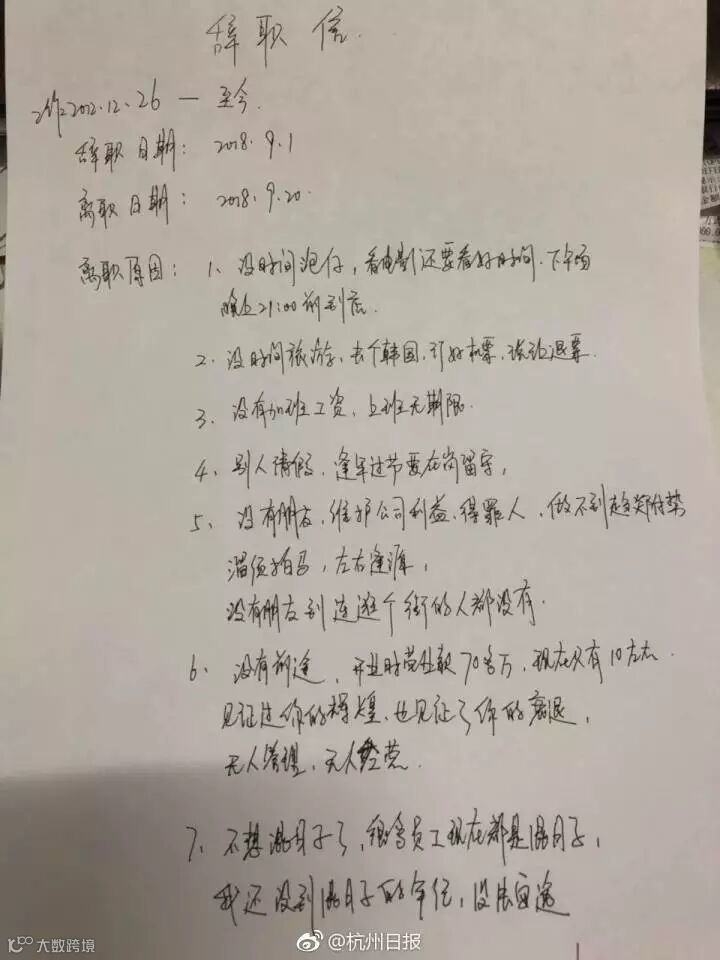 辞职信.
工作2012.12.26 — 至今.
辞职日期: 2018.9.1
离职日期: 2018.9.20.
离职原因: 1、没时间泡仔,看电影还要看好时间.下半场
晚上21:00前到店.
2、没时间旅游,去个韩国,订好机票,说退票.
3、没有加班工资,上班无期限.
4、别人请假,逢年过节要在岗留守,
5、没有朋友,维护公司利益,得罪人,做不到趋炎附势
溜须拍马,左右逢源,
没有朋友到连逛个街的人都没有.
6、没有前途,开业时营业款70多万,现在只有10左右.
见证过你的辉煌,也见证了你的衰退,
无人管理,无人经营.
7、不想混日子了,很多员工现在都是混日子,
我还没到混日子的年纪,
大数跨境
@杭州日报